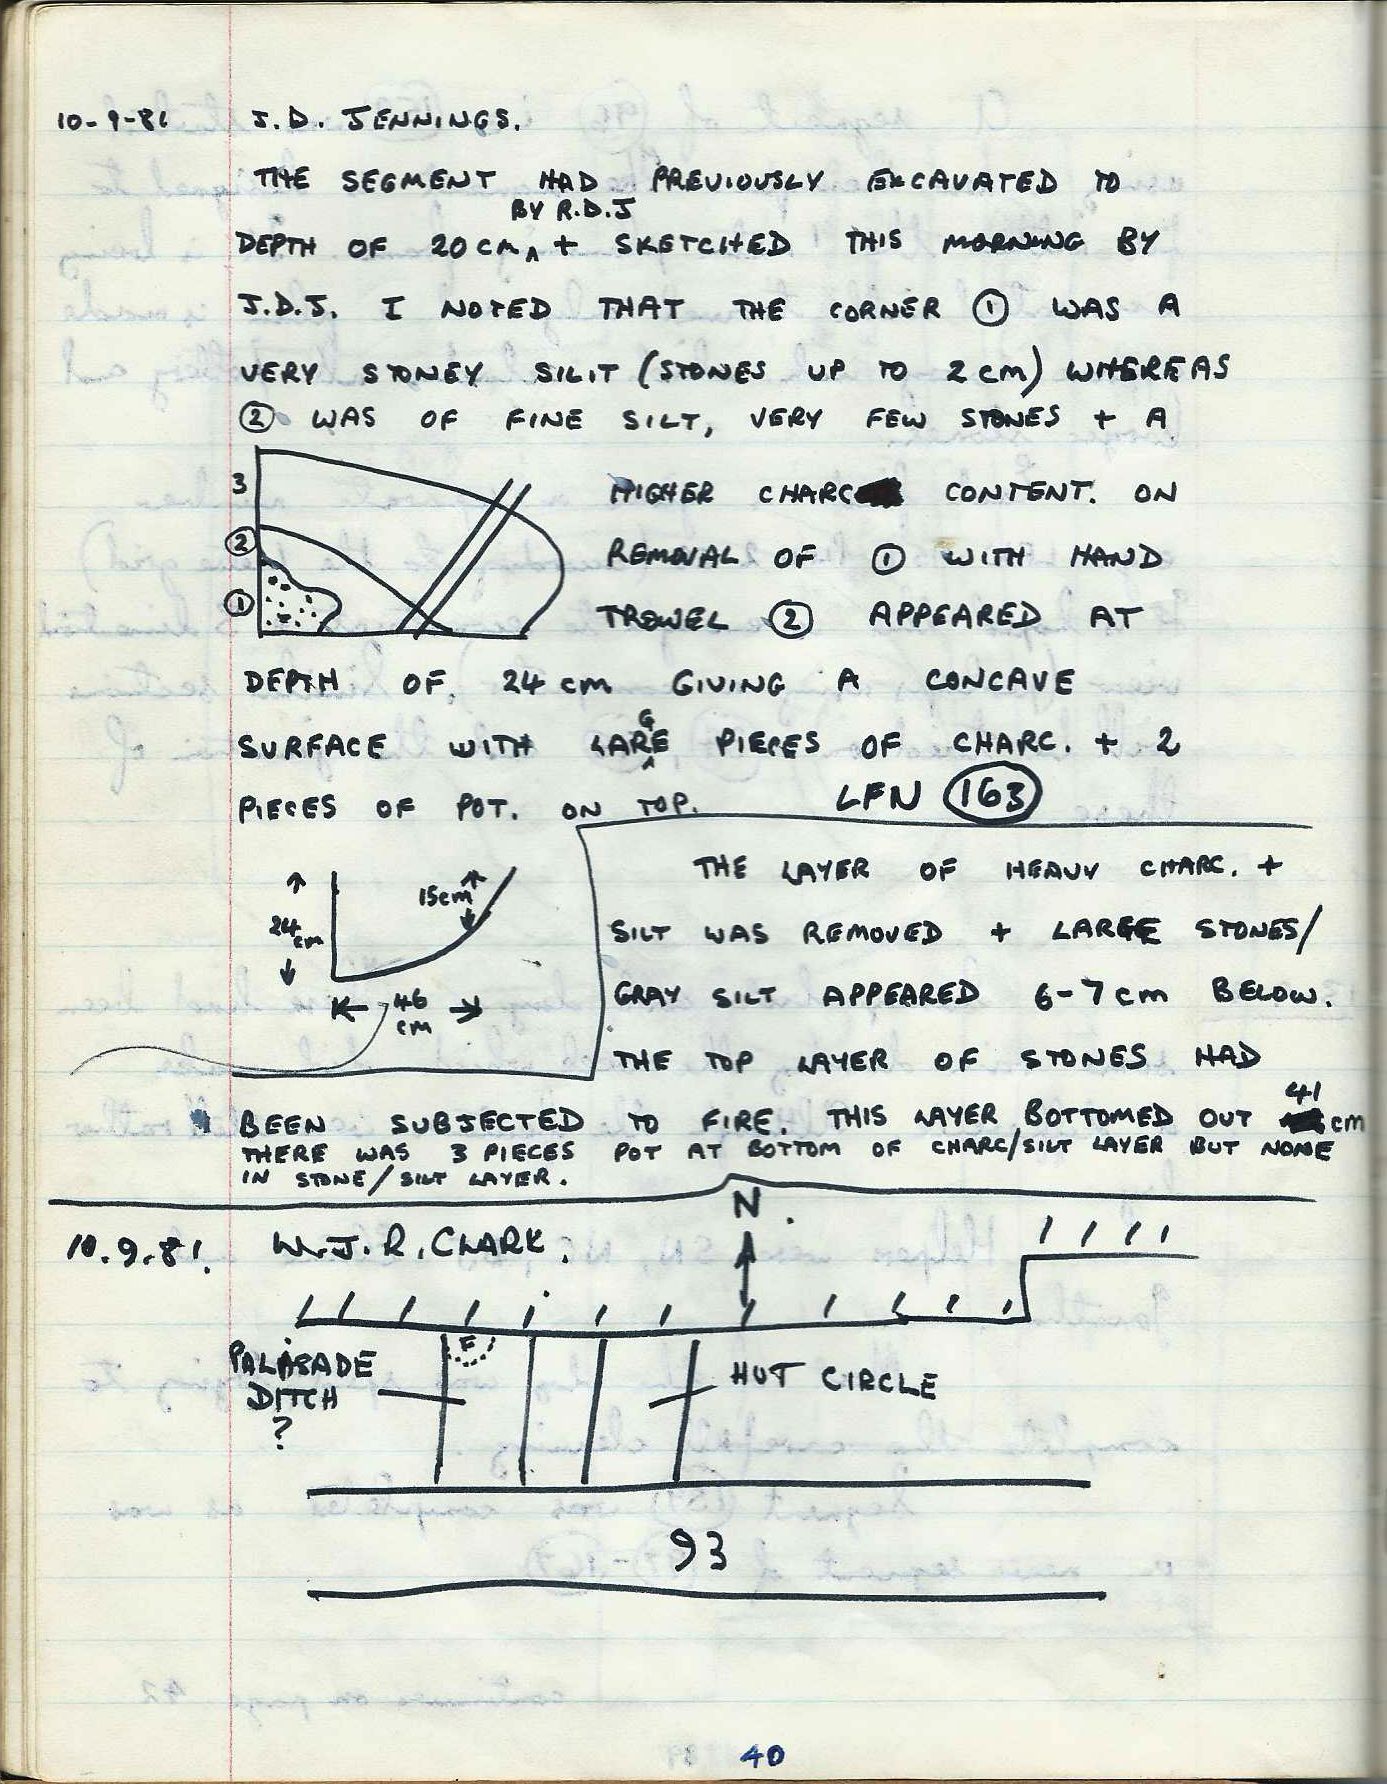 10-9-81 J.D. JENNINGS.
THE SEGMENT HAD PREVIOUSLY EXCAVATED TO
BY R.D.J
DEPTH OF 20 CM, ^ + SKETCHED THIS MORNING BY
J.D.J. I NOTED THAT THE CORNER ① WAS A
VERY STONEY SILIT (STONES UP TO 2 cm) WHEREAS
② WAS OF FINE SILT, VERY FEW STONES + A
3
②
①
HIGHER CHARC CONTENT. ON
REMOVAL OF ① WITH HAND
TROWEL ② APPEARED AT
DEPTH OF. 24 cm GIVING A CONCAVE
G
SURFACE WITH LAR^E PIECES OF CHARC. + 2
PIECES OF POT. ON TOP. LFN 163
24 cm
15cm
46 cm
THE LAYER OF HEAVY CHARC. +
SILT WAS REMOVED + LARGE STONES/
GRAY SILT APPEARED 6-7 cm BELOW.
THE TOP LAYER OF STONES HAD
41
BEEN SUBJECTED TO FIRE. THIS LAYER BOTTOMED OUT cm
THERE WAS 3 PIECES POT AT BOTTOM OF CHARC/SILT LAYER BUT NONE
IN STONE/SILT LAYER.
N
10.9.81. W.J.R. CLARK.
F
PALASADE
DITCH
?
HUT CIRCLE
93
40